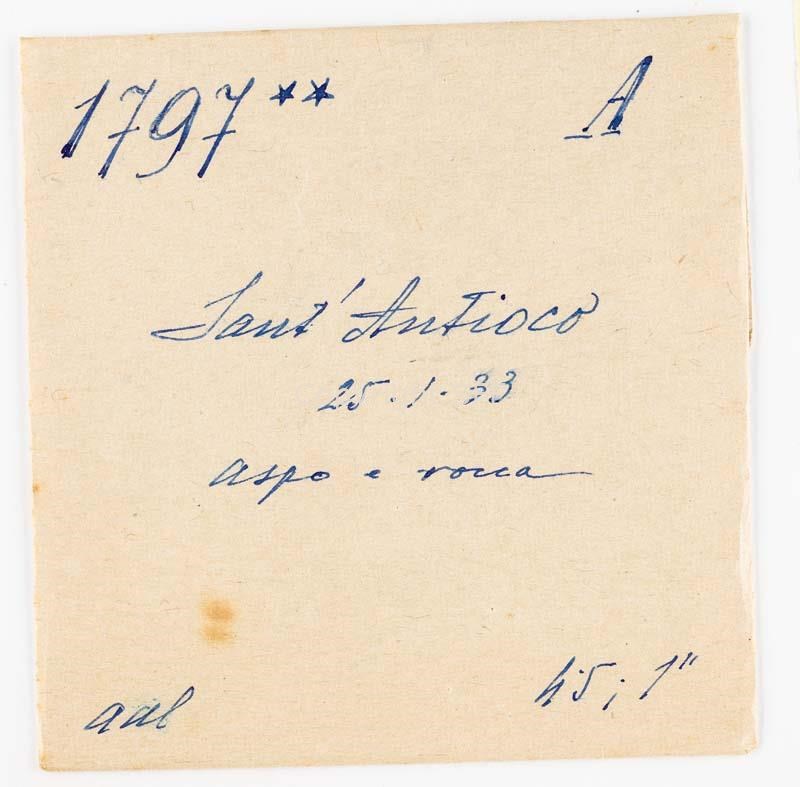 1797**
A
Sant'Antioco
25.1.33
aspo e rocca
aal
4.5; 1"